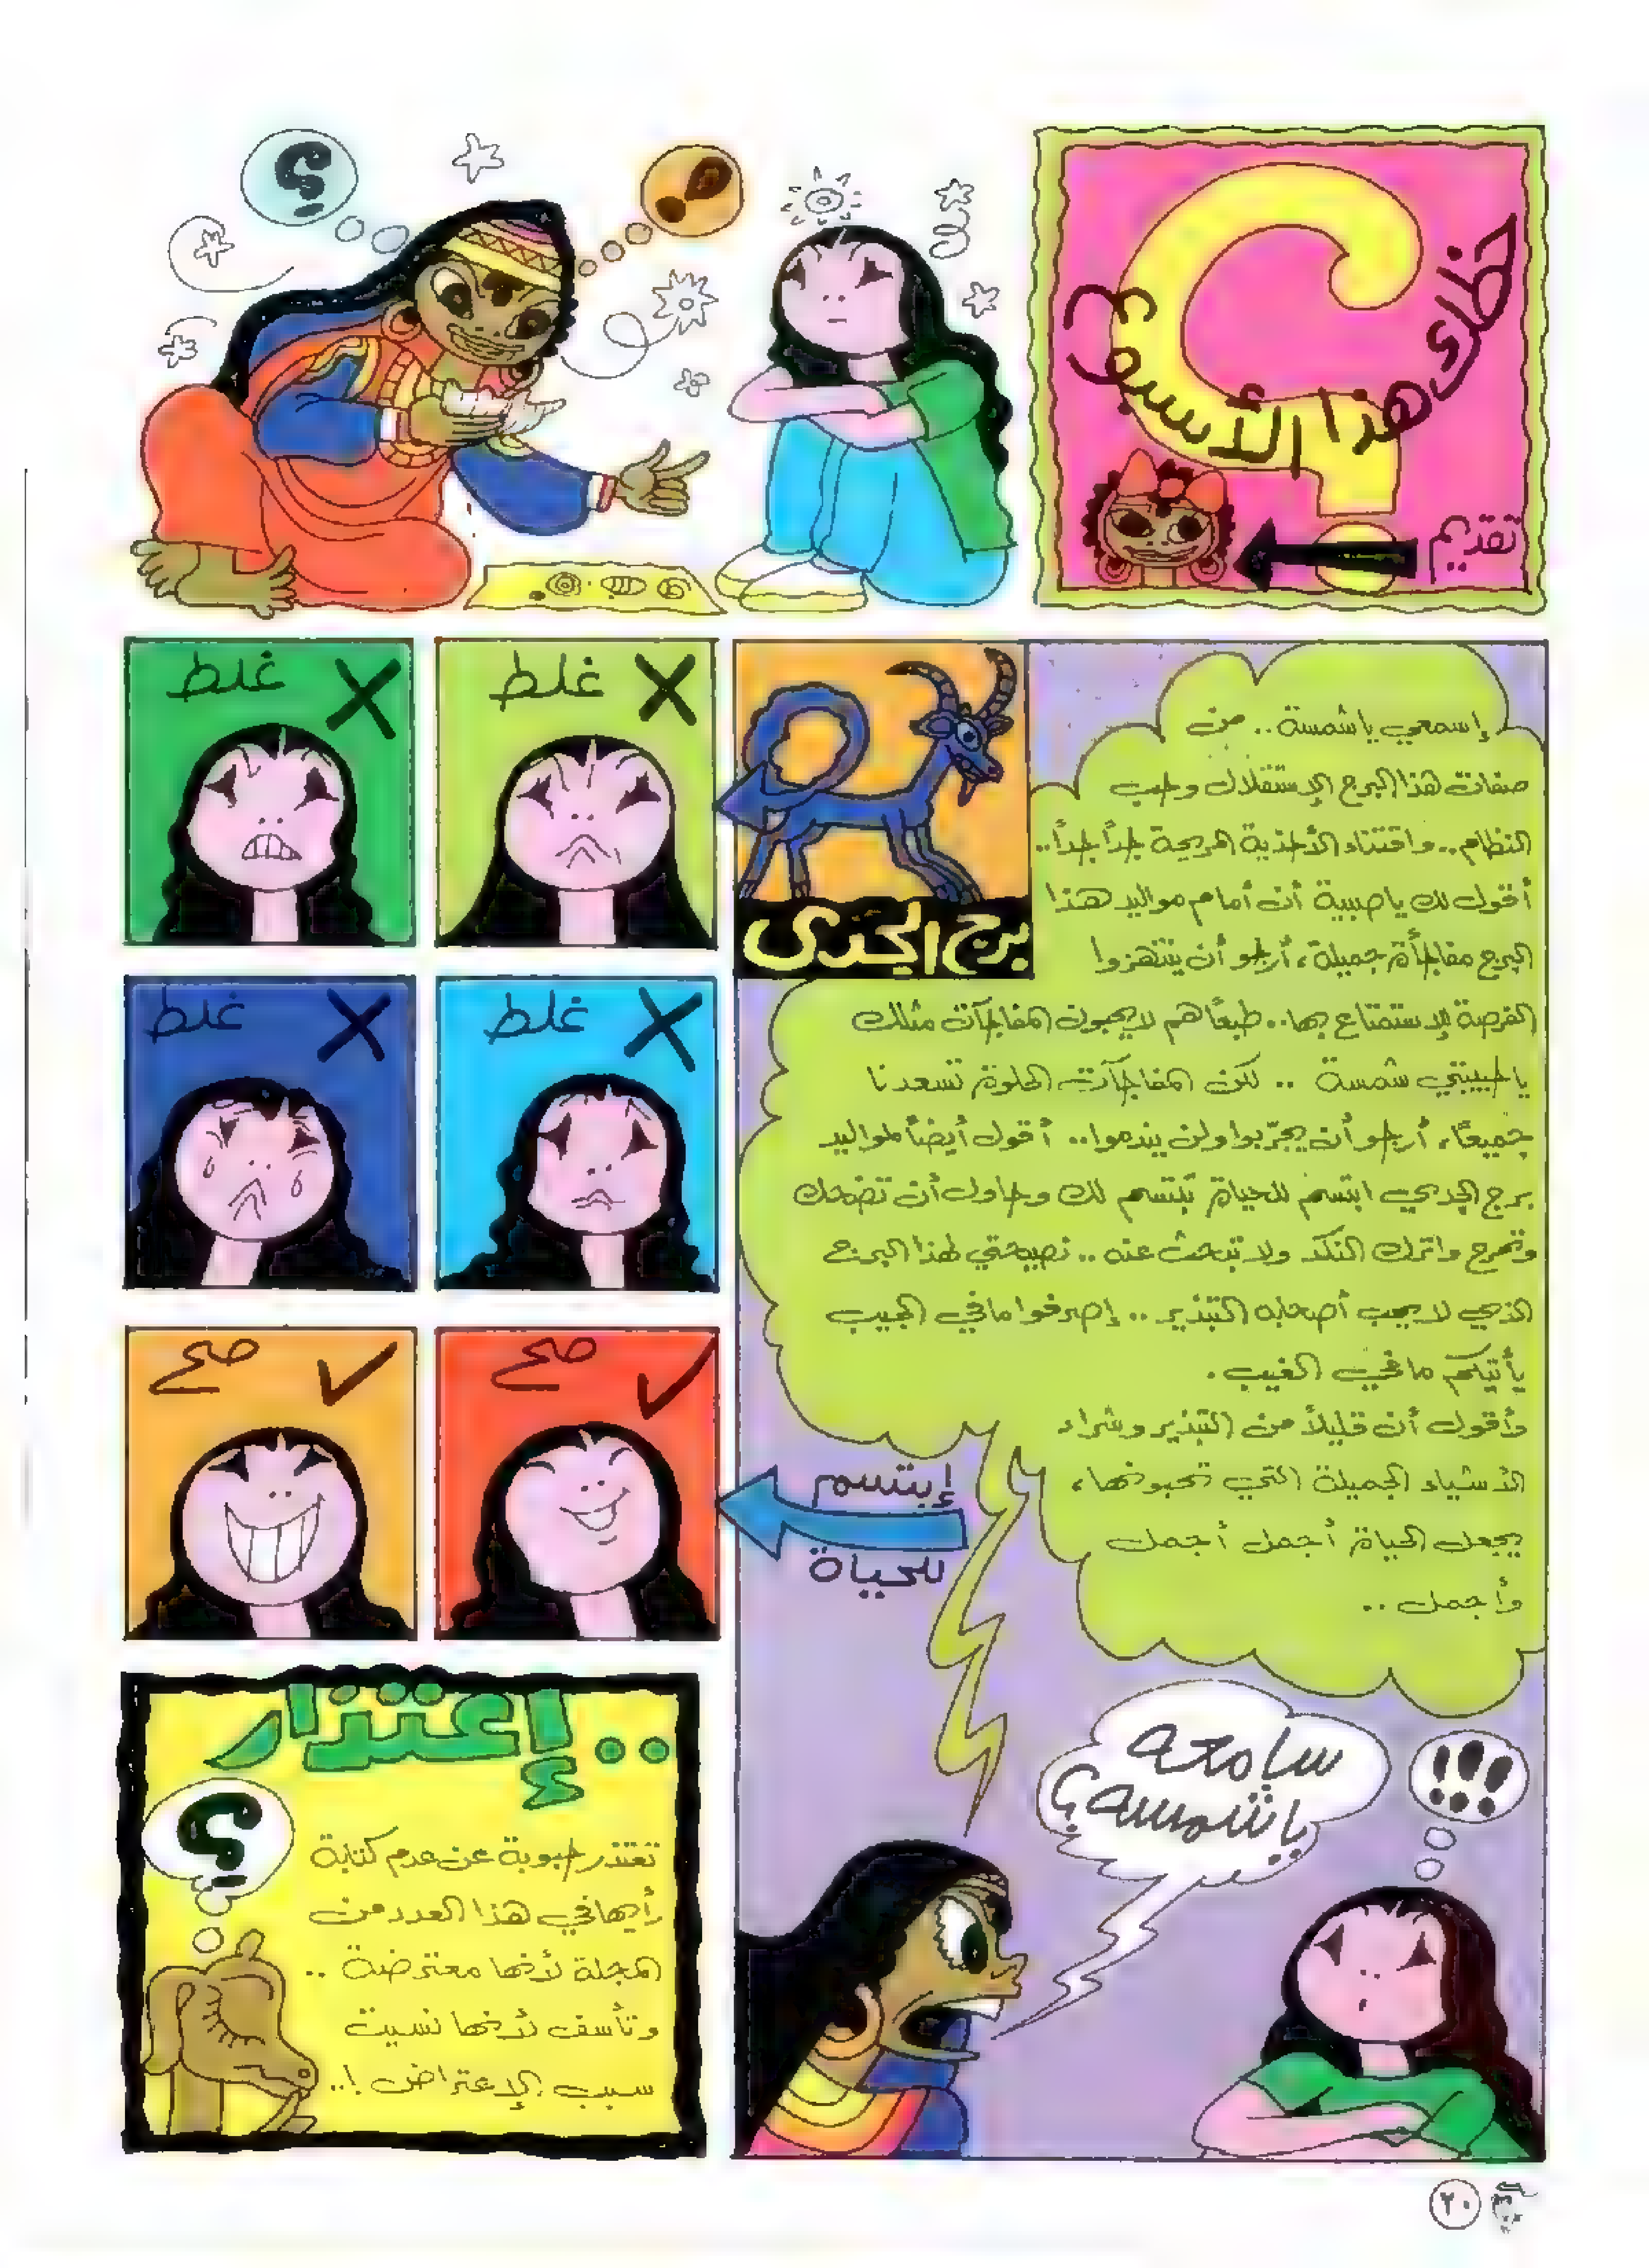 حظك هذا الأسبوع
؟
تقديم
!
؟
إسمعي ياشمسة .. من
صفات هذا البرج الإستقلال وحب
النظام .. واقتناء الأحذية المريحة جداً جداً ..
أقول لك ياصبية أن أمام مواليد هذا
البرج مفاجأة جميلة، أرجو أن ينتهزوا
الفرصة للإستمتاع بها .. طبعاً هم لايحبون المفاجآت مثلك
ياحبيبتي شمسة .. لكن المفاجآت الحلوة تسعدنا
جميعًا، أرجو أن يجرّبوا ولن يندموا .. أقول أيضاً لمواليد
برج الجدي ابتسم للحياة تبتسم لك وحاول أن تضحك
وتمرح واترك النكد ولا تبحث عنه .. نصيحتي لهذا البرج
الذي لا يحب أصحابه التبذير .. إصرفوا مافي الجيب
يأتيكم مافي الغيب .
وأقول أن قليلاً من التبذير وشراء
الأشياء الجميلة التي تحبونها،
يجعل الحياة أجمل أجمل
وأجمل ..
برج الجدى
غلط
غلط
غلط
غلط
صح
صح
إبتسم
للحياة
سامعه
ياشمسه؟
!!!
.. إعتذار
؟
تعتذر حبوبة عن عدم كتابة
رأيها في هذا العدد من
المجلة لأنها معترضة ..
وتأسف لأنها نسيت
سبب الإعتراض !..
٢٠